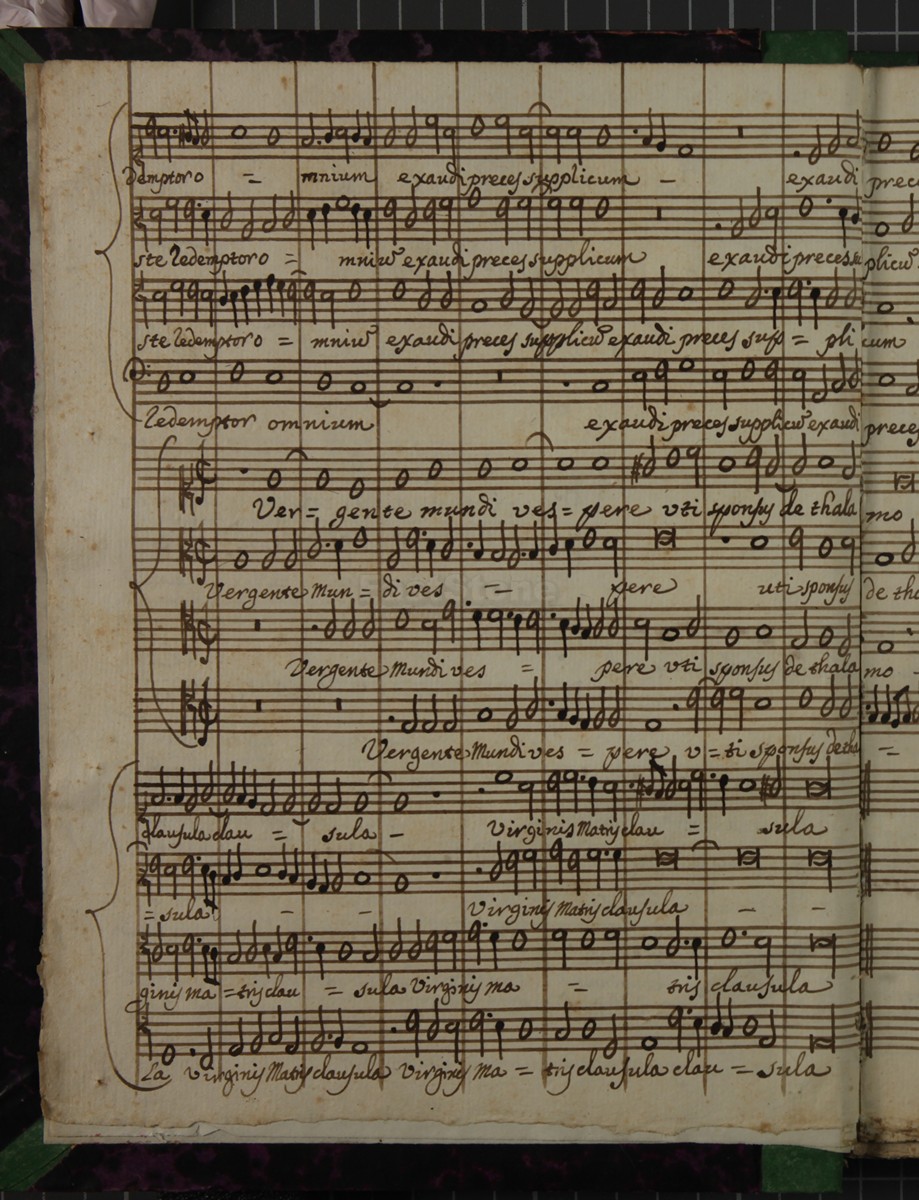 demptor o = mnium exaudi preces supplicum – exaudi prece
ste redemptor o = mniũ exaudi preces supplicum exaudi preces su plicũ
ste redemptor o = mniũ exaudi preces supplicũ exaudi preces supp = pli cum
redemptor omnium exaudi preces supplicũ exaudi preces
Ver = gente mundi ves = pere vti sponsus de thala mo
Vergente Mun = di ves – pere uti sponsus de tha
Vergente Mundi ves = pere vti sponsus de thala mo –
Vergente Mundi ves = pere v = ti sponsus de tha =
clausula clau = sula – virginis Matris clau = sula
= sula – – virginis Matris clausula – –
ginis ma = tris clau = sula virginis ma = tris clausula
La virginis Matris clausula virginis ma = tris clausula clau = sula